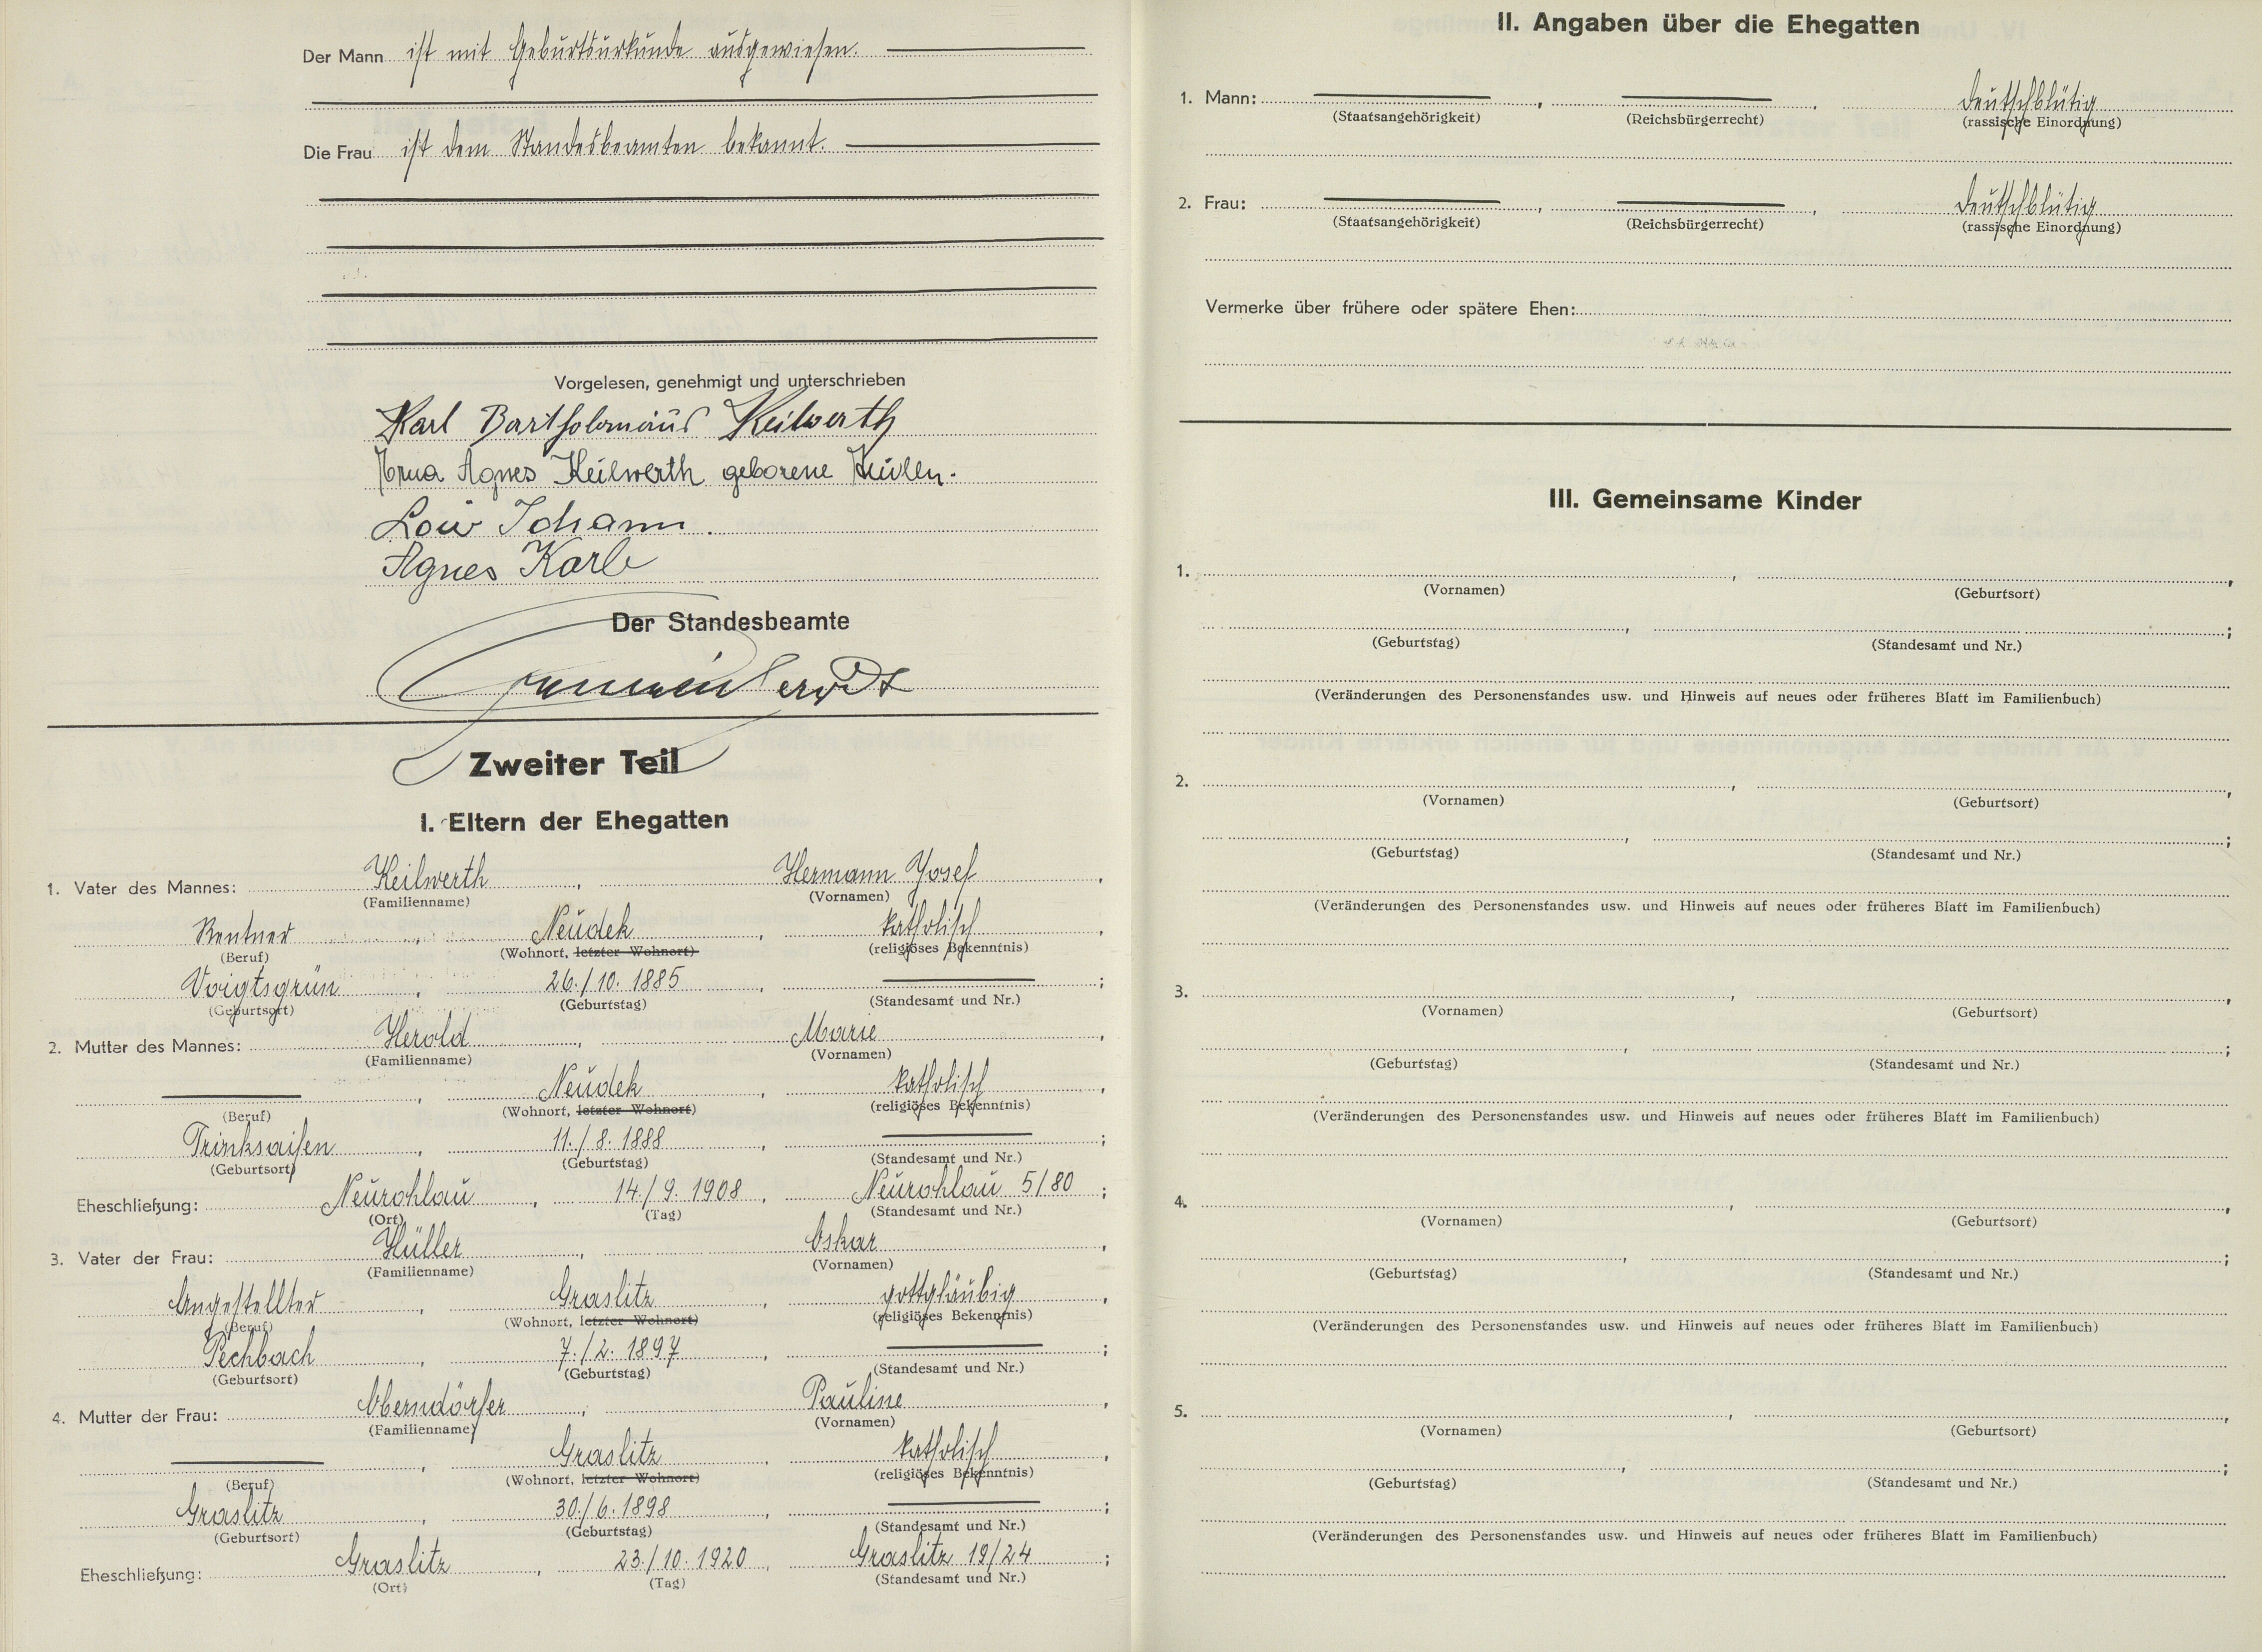 Der Mann ist mit Geburtsurkunde ausgewiesen.
Die Frau ist dem Standesbeamten bekannt.
Vorgelesen, genehmigt und unterschrieben
Karl Bartholomäus Keilwerth
Erna Agnes Keilwerth geborene Hüller.
Johann.
Agnes Karl
Der Standesbeamte
Zweiter Teil
I. Eltern der Ehegatten
1. Vater des Mannes: Keilwerth, Hermann Josef,
(Familienname) (Vornamen)
Rentner, Neudek, katholisch,
(Beruf) (Wohnort, letzter Wohnort) (religiöses Bekenntnis)
Voigtsgrün, 26./10. 1885, ;
(Geburtsort) (Geburtstag) (Standesamt und Nr.)
2. Mutter des Mannes: Herold, Marie,
(Familienname) (Vornamen)
, Neudek, katholisch,
(Beruf) (Wohnort, letzter Wohnort) (religiöses Bekenntnis)
Trinksaifen, 11./8. 1888, ;
(Geburtsort) (Geburtstag) (Standesamt und Nr.)
Eheschließung: Neurohlau, 14./9. 1908, Neurohlau 5/80;
(Ort) (Tag) (Standesamt und Nr.)
3. Vater der Frau: Hüller, Oskar,
(Familienname) (Vornamen)
Angestellter, Graslitz, gottgläubig,
(Beruf) (Wohnort, letzter Wohnort) (religiöses Bekenntnis)
Pechbach, 7./2. 1897, ;
(Geburtsort) (Geburtstag) (Standesamt und Nr.)
4. Mutter der Frau: Oberndörfer, Pauline,
(Familienname) (Vornamen)
, Graslitz, katholisch,
(Beruf) (Wohnort, letzter Wohnort) (religiöses Bekenntnis)
Graslitz, 30./6. 1898, ;
(Geburtsort) (Geburtstag) (Standesamt und Nr.)
Eheschließung: Graslitz, 23./10. 1920, Graslitz 19/24;
(Ort) (Tag) (Standesamt und Nr.)
II. Angaben über die Ehegatten
1. Mann: , , deutschblütig
(Staatsangehörigkeit) (Reichsbürgerrecht) (rassische Einordnung)
2. Frau: , , deutschblütig
(Staatsangehörigkeit) (Reichsbürgerrecht) (rassische Einordnung)
Vermerke über frühere oder spätere Ehen:
III. Gemeinsame Kinder
1. , ,
(Vornamen) (Geburtsort)
, ;
(Geburtstag) (Standesamt und Nr.)
(Veränderungen des Personenstandes usw. und Hinweis auf neues oder früheres Blatt im Familienbuch)
2. , ,
(Vornamen) (Geburtsort)
, ;
(Geburtstag) (Standesamt und Nr.)
(Veränderungen des Personenstandes usw. und Hinweis auf neues oder früheres Blatt im Familienbuch)
3. , ,
(Vornamen) (Geburtsort)
, ;
(Geburtstag) (Standesamt und Nr.)
(Veränderungen des Personenstandes usw. und Hinweis auf neues oder früheres Blatt im Familienbuch)
4. , ,
(Vornamen) (Geburtsort)
, ;
(Geburtstag) (Standesamt und Nr.)
(Veränderungen des Personenstandes usw. und Hinweis auf neues oder früheres Blatt im Familienbuch)
5. , ,
(Vornamen) (Geburtsort)
, ;
(Geburtstag) (Standesamt und Nr.)
(Veränderungen des Personenstandes usw. und Hinweis auf neues oder früheres Blatt im Familienbuch)